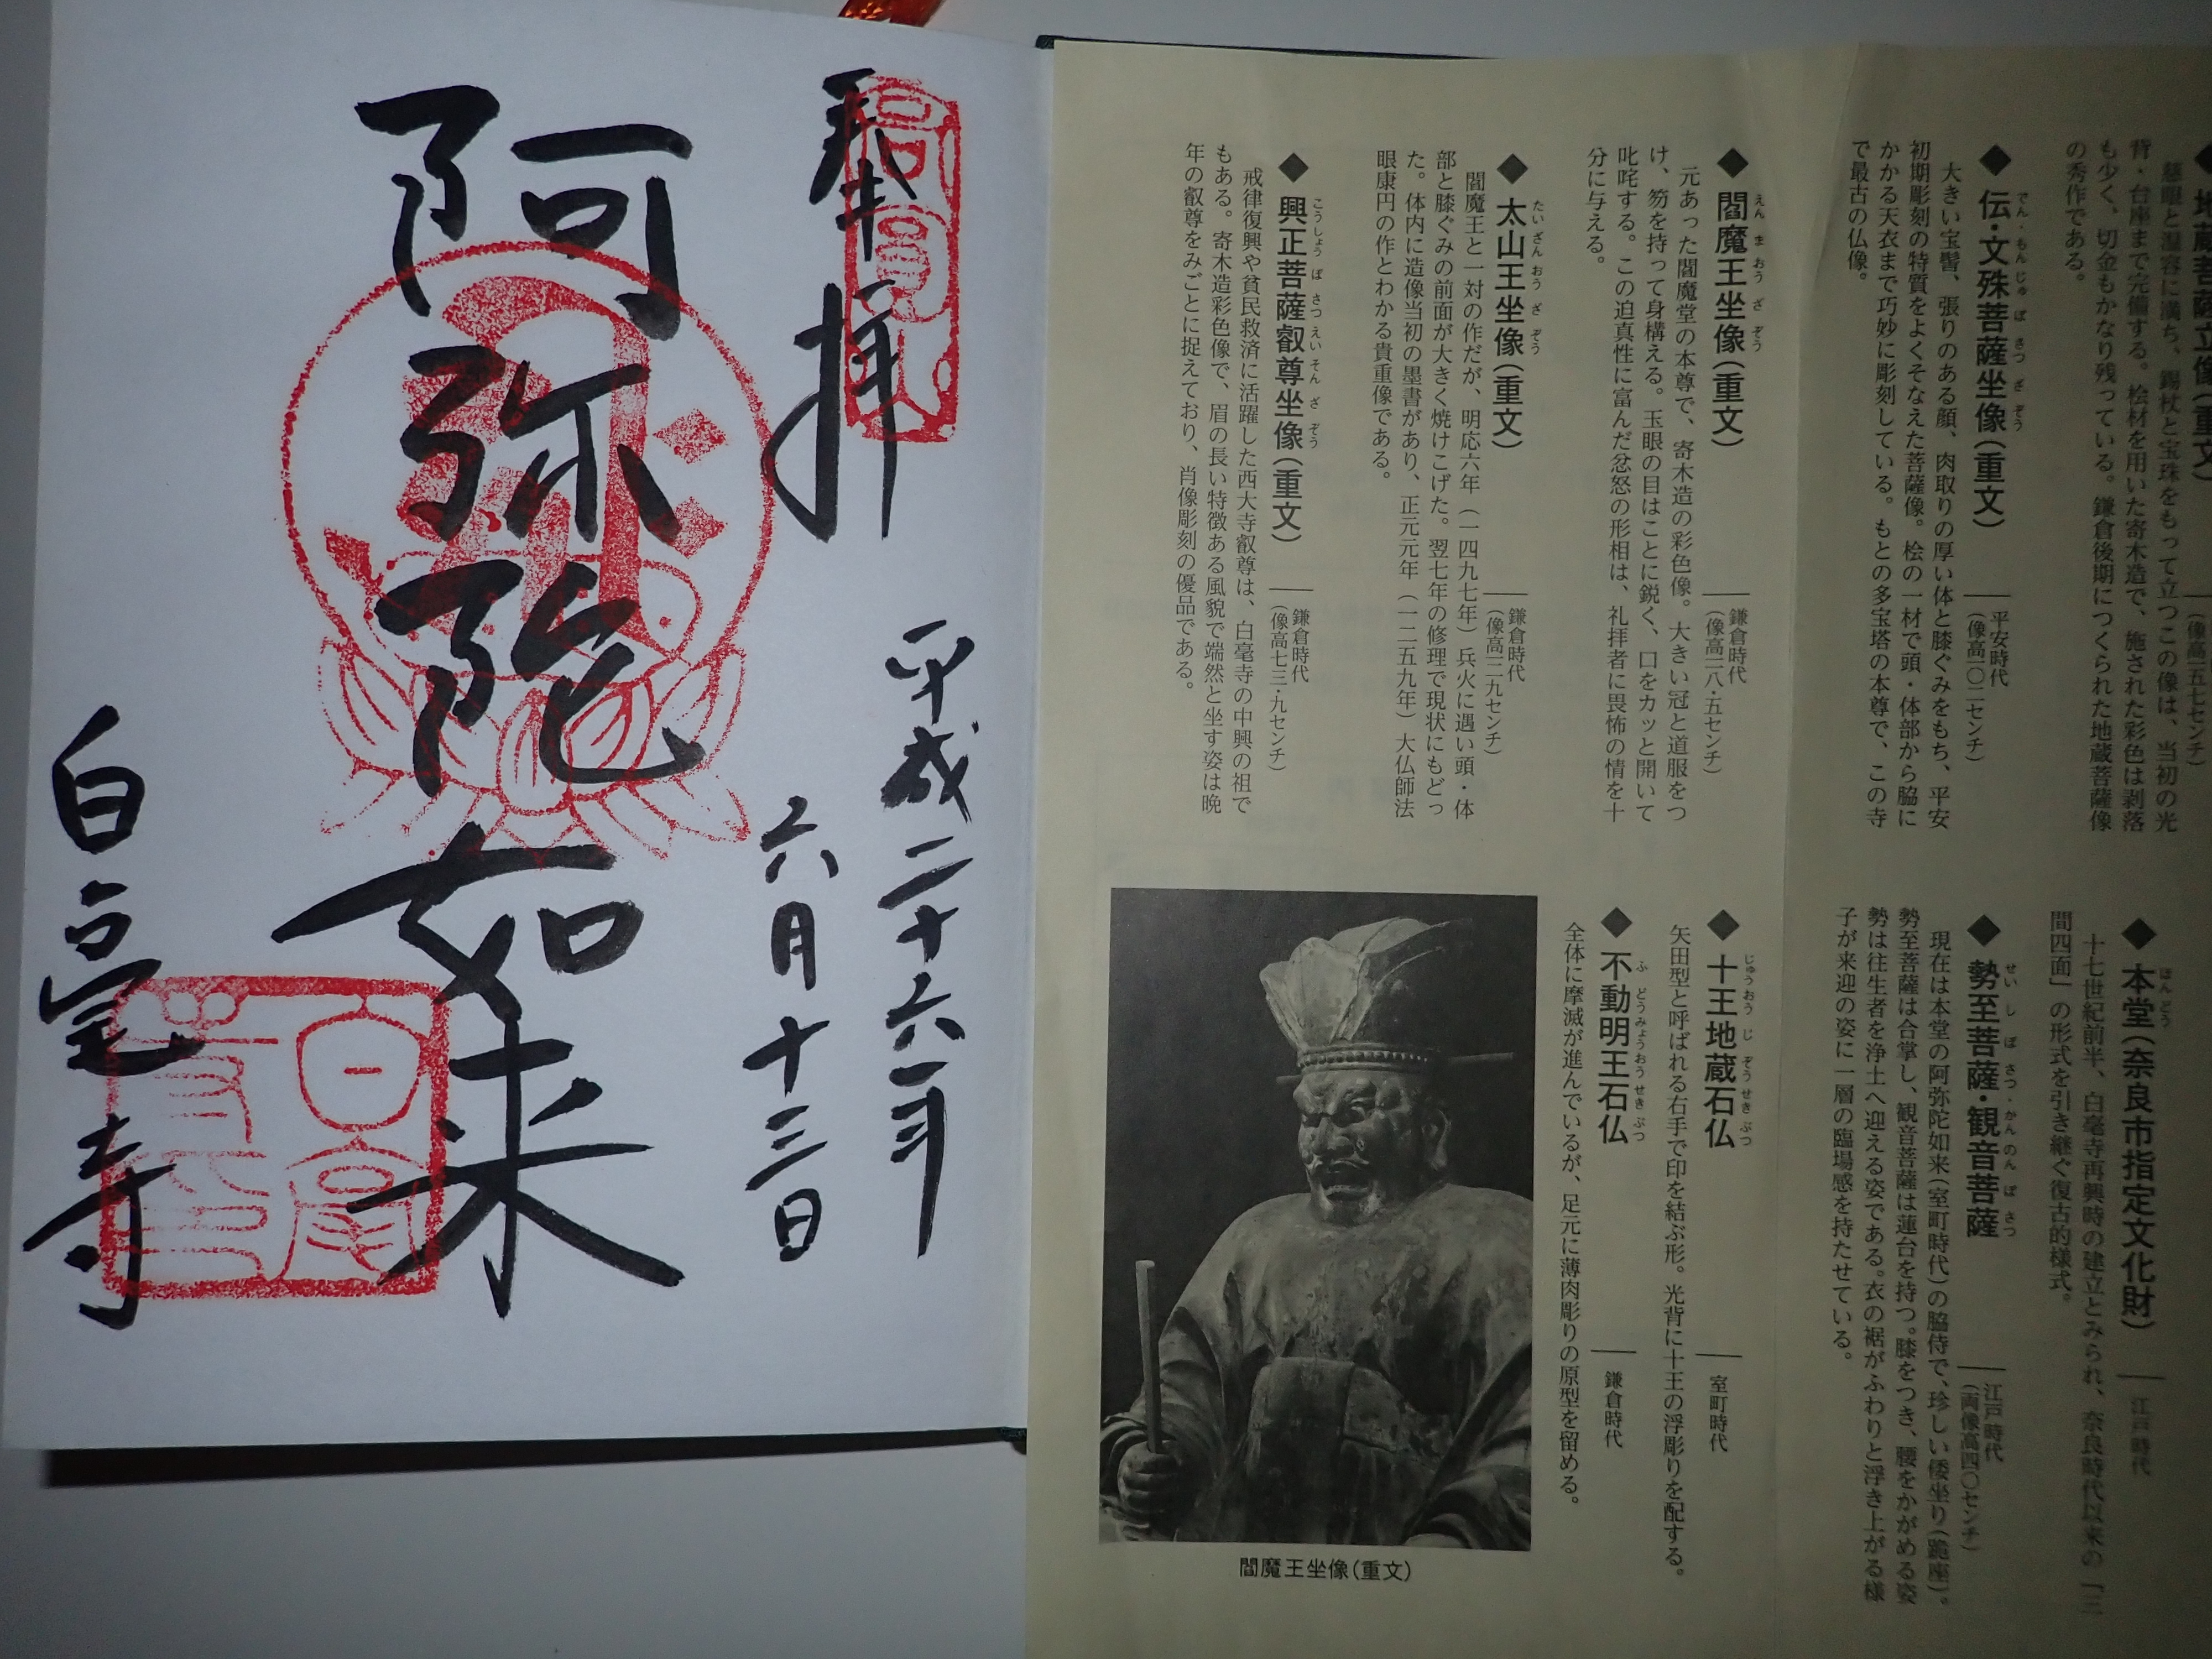 奉拝
平成二十六年
六月十三日
阿弥陀如来
白毫寺
地蔵菩薩立像(重文)
(像高一五七センチ)
慈眼と温容に満ち、錫杖と宝珠をもって立つこの像は、当初の光
背・台座まで完備する。桧材を用いた寄木造で、施された彩色は剥落
も少く、切金もかなり残っている。鎌倉後期につくられた地蔵菩薩像
の秀作である。
◆伝・文殊菩薩坐像(重文)
でん・もんじゅぼさつざぞう
平安時代
(像高一〇二センチ)
大きい宝髻、張りのある顔、肉取りの厚い体と膝ぐみをもち、平安
初期彫刻の特質をよくそなえた菩薩像。桧の一材で頭・体部から脇に
かかる天衣まで巧妙に彫刻している。もとの多宝塔の本尊で、この寺
で最古の仏像。
◆閻魔王坐像(重文)
えんまおうざぞう
鎌倉時代
(像高一一八・五センチ)
元あった閻魔堂の本尊で、寄木造の彩色像。大きい冠と道服をつ
け、笏を持って身構える。玉眼の目はことに鋭く、口をカッと開いて
叱咤する。この迫真性に富んだ忿怒の形相は、礼拝者に畏怖の情を十
分に与える。
◆太山王坐像(重文)
たいざんおうざぞう
鎌倉時代
(像高一二九センチ)
閻魔王と一対の作だが、明応六年(一四九七年)兵火に遇い頭・体
部と膝ぐみの前面が大きく焼けこげた。翌七年の修理で現状にもどっ
た。体内に造像当初の墨書があり、正元元年(一二五九年)大仏師法
眼康円の作とわかる貴重像である。
◆興正菩薩叡尊坐像(重文)
こうしょうぼさつえいそんざぞう
鎌倉時代
(像高七三・九センチ)
戒律復興や貧民救済に活躍した西大寺叡尊は、白毫寺の中興の祖で
もある。寄木造彩色像で、眉の長い特徴ある風貌で端然と坐す姿は晩
年の叡尊をみごとに捉えており、肖像彫刻の優品である。
◆本堂(奈良市指定文化財)
ほんどう
江戸時代
十七世紀前半、白毫寺再興時の建立とみられ、奈良時代以来の「三
間四面」の形式を引き継ぐ復古的様式。
◆勢至菩薩・観音菩薩
せいしぼさつ・かんのんぼさつ
江戸時代
(両像高四〇センチ)
現在は本堂の阿弥陀如来(室町時代)の脇侍で、珍しい倭坐り(跪座)。
勢至菩薩は合掌し、観音菩薩は蓮台を持つ。膝をつき、腰をかがめる姿
勢は往生者を浄土へ迎える姿である。衣の裾がふわりと浮き上がる様
子が来迎の姿に一層の臨場感を持たせている。
◆十王地蔵石仏
じゅうおうじぞうせきぶつ
室町時代
矢田型と呼ばれる右手で印を結ぶ形。光背に十王の浮彫りを配する。
◆不動明王石仏
ふどうみょうおうせきぶつ
鎌倉時代
全体に摩滅が進んでいるが、足元に薄肉彫りの原型を留める。
閻魔王坐像(重文)